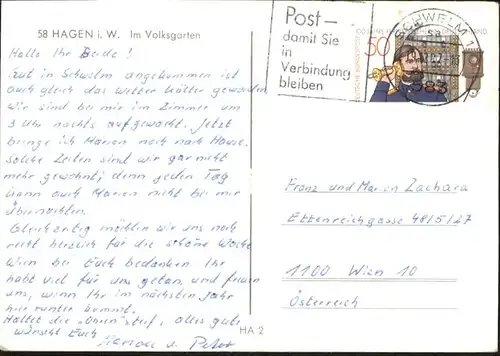 58 HAGEN i. W.   Im Volksgarten
Post-
damit Sie
in
Verbindung
bleiben
50
DEUTSCHE BUNDESPOST
SCHWELM 1
583
Hallo Ihr Beide!
Gut in Schwelm angekommen ist
auch gleich das Wetter kälter geworden
wir sind bei mir im Zimmer um
3 Uhr nachts aufgewacht. Jetzt
bringe ich Marion noch nach Hause.
Solche Zeiten sind wir gar nicht
mehr gewohnt; denn jeden Tag
kann auch Marion nicht bei mir
Übernachten.
Gleichzeitig möchten wir uns noch
recht herzlich für die schöne Woche
Wien bei Euch bedanken. Ihr
habt viel für uns getan, und freuen
uns, wenn Ihr im nächsten Jahr
hier runter kommt.
Haltet die "Ohren" steif, alles gute
wünscht Euch
Marion u. Peter
HA 2
Franz und Marion Zachara
Ettenreichgasse 48/5/27
1100 Wien 10
Österreich